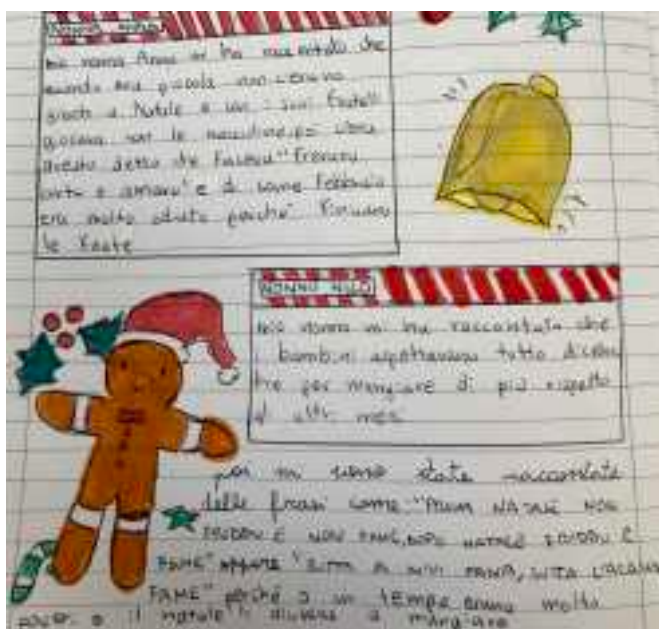 NONNA ANNA
mia nonna Anna mi ha raccontato che
quando era piccola non c'erano
giochi a Natale e con i suoi fratelli
giocava con le nocciline, poi c'era
questo detto che faceva "Frevaru
curtu e amaru" e di come Febbraio
era molto odiato perché finivano
le feste
NONNO NINO
mio nonno mi ha raccontato che
i bambini aspettavano tutto dicem
bre per mangiare di più rispetto
gli altri mesi
poi mi sono state raccontate
delle frasi come: "PRIMA NATALE NON
FRIDDU E NON FAME, DOPU NATALE FRIDDU E
FAME" oppure
FAME" perché a un tempo erano molto
e il natale li aiutava a mangiare